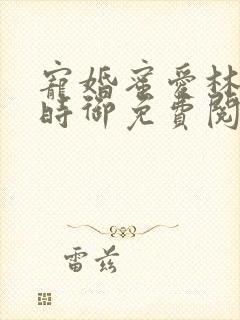 寵婚蜜愛林
時御免費閱
雷茲